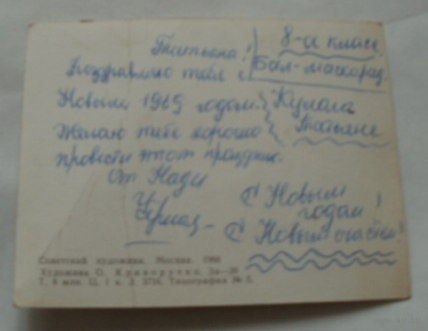 Татьяна!
Поздравляю тебя с
Новым 1969 годом
Желаю тебе хорошо
провести этот праздник.
От Нади
8-а класс
Бал-маскарад
Татьяне
С Новым
годом!
С Новым счастьем!
Советский художник. Москва. 1968
Художник О.
Т. 8 млн. Ц. 1 к. З. 3716. Типография № 5.